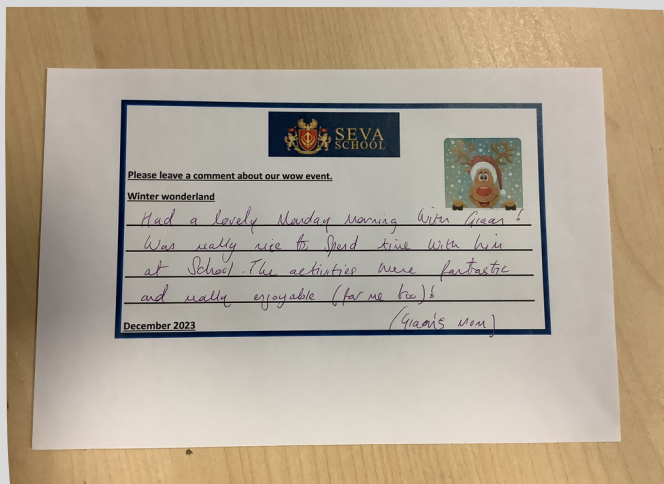 SEVA
SCHOOL
Please leave a comment about our wow event.
Winter wonderland
Had a lovely Monday Morning with Giaan!
Was really nice to spend time with him
at School. The activities were fantastic
and really enjoyable (for me too)!
December 2023
(Giaan's Mom)